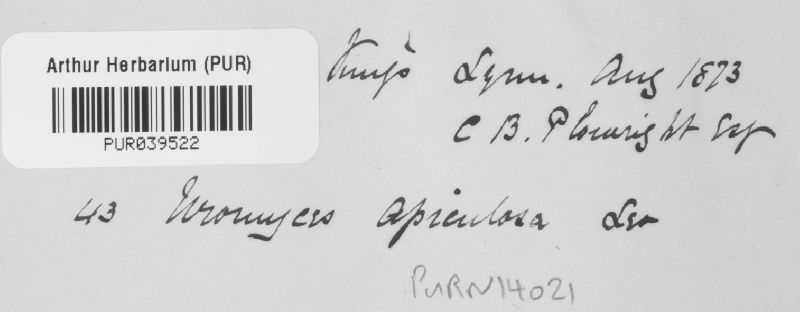 Arthur Herbarium (PUR)
PUR039522
King's Lynn. Aug 1873
C B. Plowright Esq
43 Uromyces apiculosa Lev
PURN14021